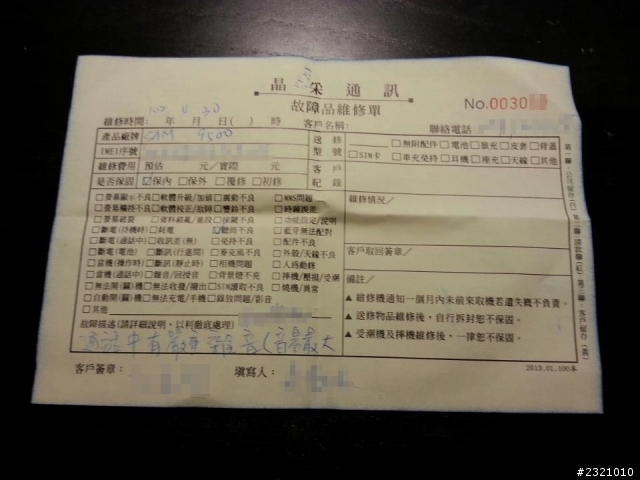 晶采通訊
故障品維修單
No.0030
維修時間: 年 月 日( ) 時 客戶名稱: 聯絡電話
產品廠牌 SAM 9500
送修型號 □無附配件 □電池 □旅充 □皮套 □背蓋
IMEI序號
□SIM卡 □車充免持 □耳機 □座充 □天線 □其他
維修費用 預估 元/實際 元
客戶紀錄
是否保固 ☑保內 □保外 □復修 □初修
□螢幕顯示不良 □軟體升級/加鎖 □震動不良 □MMS問題
□螢幕觸控不良 □軟體校正/故障 □響鈴不良 □時鐘誤差
□螢幕破裂 □按鍵不良 □功能設定/說明
□斷電(待機時) □耗電 ☑聽筒不良 □藍芽無法配對
□斷電(通話中) □收訊差(無) □免持不良 □配件不良
□斷電(電池) □斷訊(行進間) □麥克風不良 □外殼/天線不良
□當機(操作時) □斷訊(靜止時) □相機問題 □人為動修
□當機(通話中) □雜音/回授音 □背景燈不亮 □摔機/壓損/受潮
□無法開(關)機 □無法收發/撥出 □SIM讀取不良 □燒機/異常
□自動開(關)機 □無法充電/手機 □錄放問題/影音
□其他
維修情況/
客戶取回簽章/
備註/
▲ 維修機通知一個月內未前來取機若遺失概不負責。
▲ 送修物品維修後，自行拆封恕不保固。
▲ 受潮機及摔機維修後，一律恕不保固。
故障描述(請詳細說明，以利徹底處理)
通話中有嚴重雜音(音量最大
客戶簽章: 填寫人:
2013.01.100本
#2321010